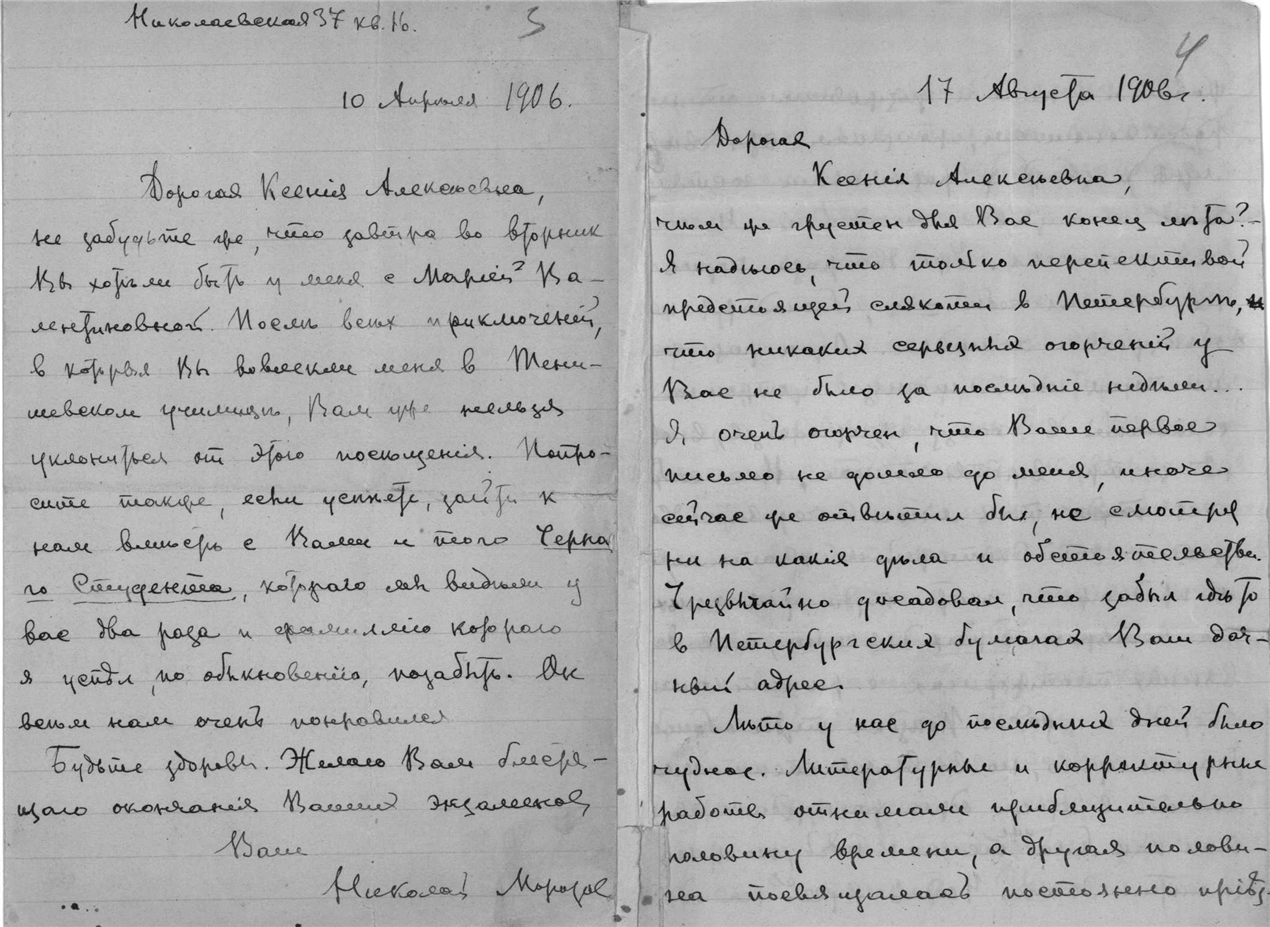 Николаевская 37 кв. 16.
3
10 Апрѣля 1906.
Дорогая Ксенія Алексѣевна,
не забудьте же, что завтра во вторник
Вы хотѣли быть у меня с Маріей Ва-
лентиновной. Послѣ всѣх приключеній,
в которыя Вы вовлекли меня в Тени-
шевском училищѣ, Вам уже нельзя
уклониться от этого посѣщенія. Попро-
сите также, если успѣете, зайти к
нам вмѣстѣ с Вами и того Черна
го Студента, котораго мы видѣли у
вас два раза и фамилію котораго
я успѣл, по обыкновенію, позабыть. Он
всѣм нам очень понравился
Будьте здоровы. Желаю Вам блестя-
щаго окончанія Ваших экзаменов
Ваш
Николай Морозов
4
17 Августа 1906 г.
Дорогая
Ксенія Алексѣевна,
чѣм же грустен для Вас конец лѣта?-
Я надѣюсь, что только перспективой
предстоящей слякоти в Петербургѣ, и
что никаких серьезных огорченій у
Вас не было за послѣдніе недѣли...
Я очень огорчен, что Ваше первое
письмо не дошло до меня, иначе
сейчас же отвѣтил бы, не смотря
ни на какія дѣла и обстоятельства.
Чрезвычайно досадовал, что забыл гдѣ то
в Петербургских бумагах Ваш дач-
ный адрес.
Лѣто у нас до послѣдних дней было
чудное. Литературные и корректурные
работы отнимали приблизительно
половину времени, а другая полови-
на посвящалась постоянно пріѣз-